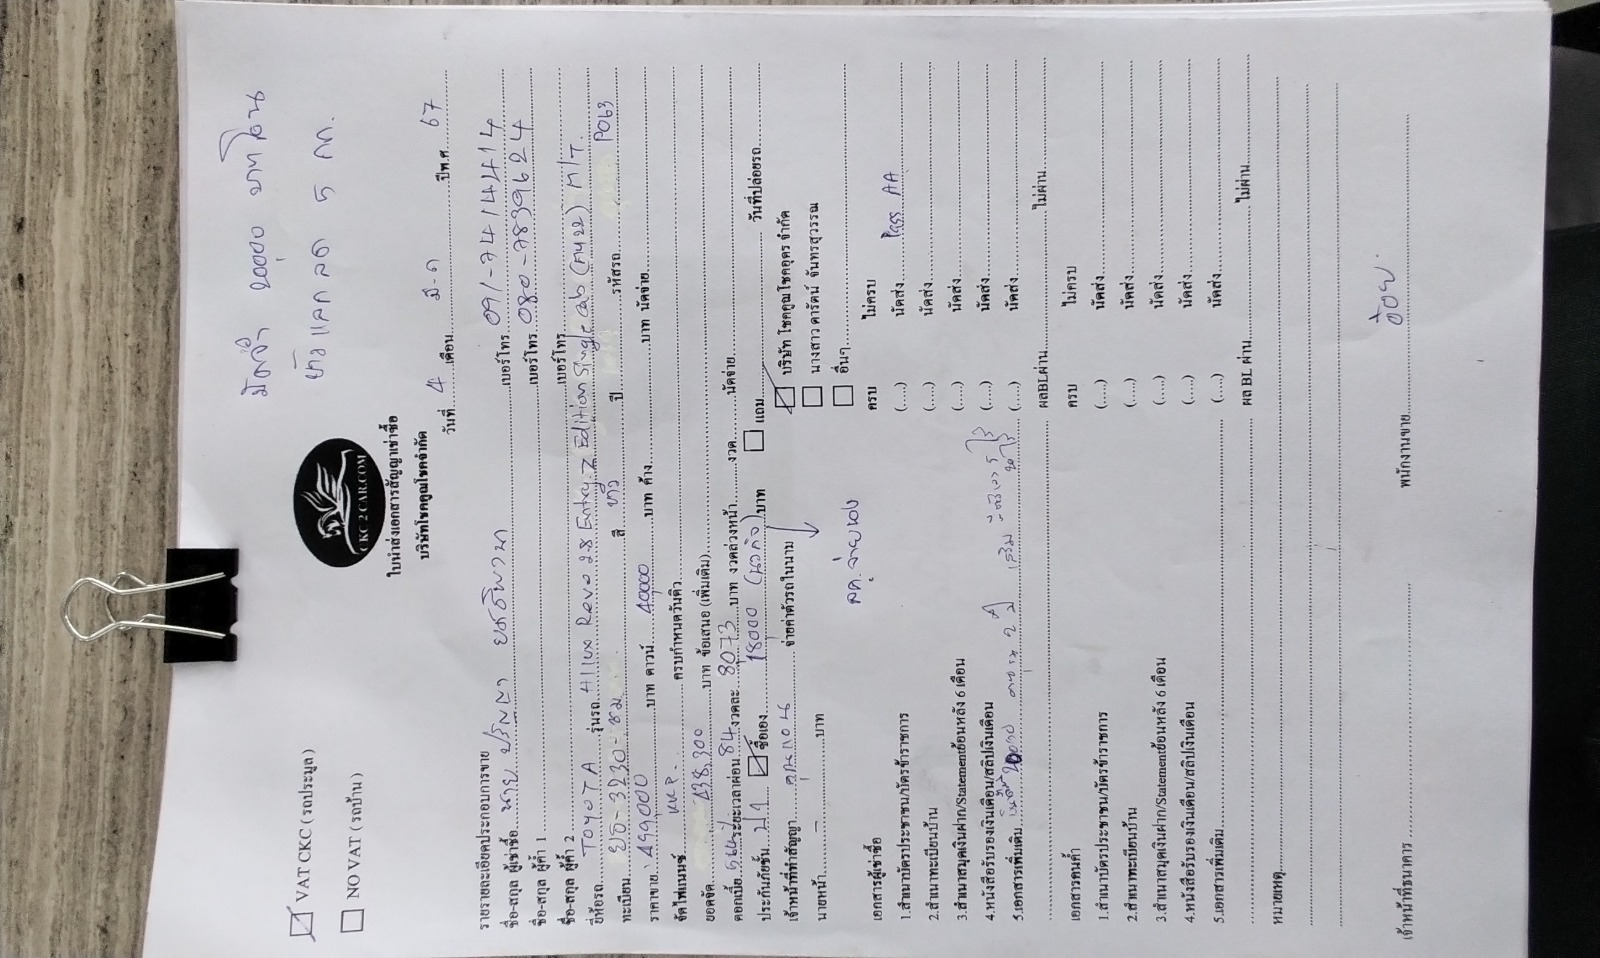 มัดจำ 20,000 บาทโอน
☑ VAT CKC (รถประมูล)
☐ NO VAT (รถบ้าน)
CKC 2 CAR.COM
ใบนำส่งเอกสารสัญญาเช่าซื้อ
บริษัทโชคคูณโชคจำกัด
วันที่ 4 เดือน มี.ค ปีพ.ศ. 67
รายรายละเอียดประกอบการขาย
ชื่อ-สกุล ผู้เช่าซื้อ นาย ปริญญา เบอร์โทร. 091-7414414
ชื่อ-สกุล ผู้ค้ำ 1 เบอร์โทร. 080-7839624
ชื่อ-สกุล ผู้ค้ำ 2 เบอร์โทร
ยี่ห้อรถ TOYOTA รุ่นรถ Hilux Revo 2.8 Entry Z Edition Single Cab (MY22) M/T.
ทะเบียน 3730-ชม สี ขาว ปี รหัสรถ P063
ราคาขาย 499,000 บาท ดาวน์ 40,000 บาท ค้าง บาท นัดจ่าย
จัดไฟแนนซ์ KKP. ครบกำหนดวันคิว
ยอดจัด 438,300 บาท ข้อเสนอ (เพิ่มเติม)
ดอกเบี้ย ระยะเวลาผ่อน 84 งวดละ 8073 บาท งวดล่วงหน้า งวด นัดจ่าย
ประกันภัยชั้น ป.1 ☑ ซื้อเอง 18,000 บาท ☐ แถม วันที่ปล่อยรถ
เจ้าหน้าที่ทำสัญญา จ่ายค่าตัวรถในนาม ☑ บริษัท โชคคูณโชคอุดร จำกัด
นายหน้า - บาท ☐ นางสาว ดารัตน์ จันทรสุวรรณ
☐ อื่นๆ
เอกสารผู้เช่าซื้อ ครบ ไม่ครบ
1.สำเนาบัตรประชาชน/บัตรข้าราชการ (....) นัดส่ง Pass AA
2.สำเนาทะเบียนบ้าน (....) นัดส่ง
3.สำเนาสมุดเงินฝาก/Statementย้อนหลัง 6 เดือน (....) นัดส่ง
4.หนังสือรับรองเงินเดือน/สลิปเงินเดือน (....) นัดส่ง
5.เอกสารเพิ่มเติม (....) นัดส่ง
ผลBLผ่าน ไม่ผ่าน
เอกสารคนค้ำ ครบ ไม่ครบ
1.สำเนาบัตรประชาชน/บัตรข้าราชการ (....) นัดส่ง
2.สำเนาทะเบียนบ้าน (....) นัดส่ง
3.สำเนาสมุดเงินฝาก/Statementย้อนหลัง 6 เดือน (....) นัดส่ง
4.หนังสือรับรองเงินเดือน/สลิปเงินเดือน (....) นัดส่ง
5.เอกสารเพิ่มเติม (....) นัดส่ง
ผล BL ผ่าน ไม่ผ่าน
หมายเหตุ
เจ้าหน้าที่ธนาคาร พนักงานขาย